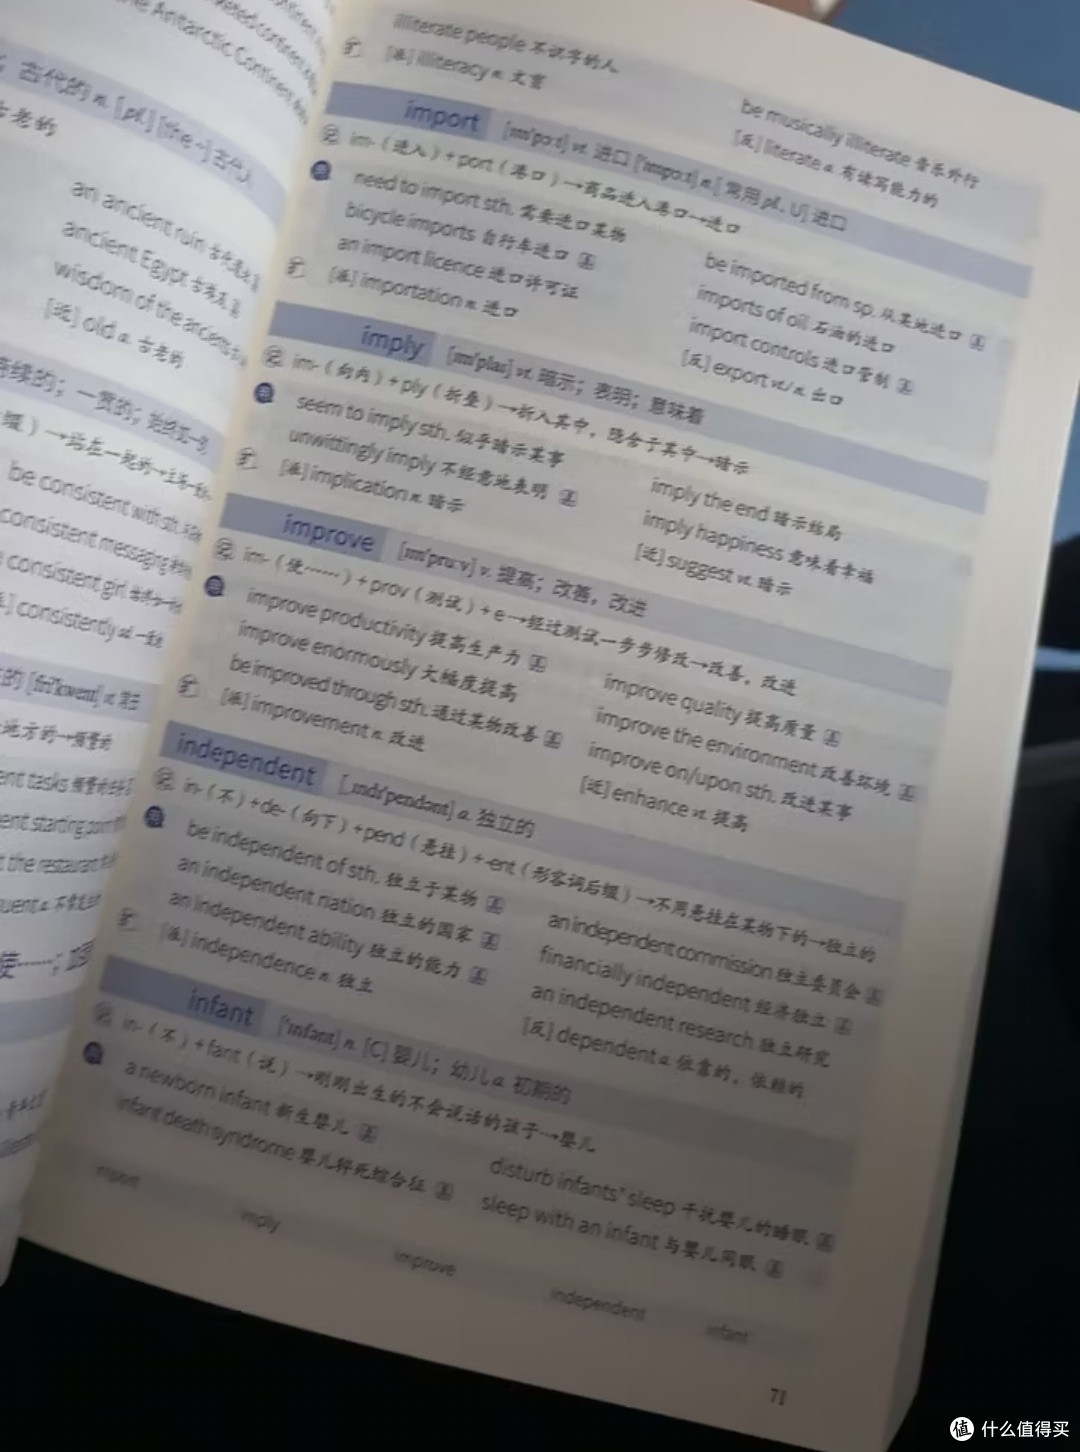 the Antarctic Continent
古代的 n. [pl.] [the ~] 古代人
古老的
an ancient ruin
ancient Egypt
wisdom of the ancients
[近] old a. 古老的
持续的；一贯的；始终如一的
be consistent with sth.
consistent messaging
consistent girl
consistently ad.
illiterate people 不识字的人
be musically illiterate 音乐外行
[派] illiteracy n. 文盲
[反] literate a. 有读写能力的
import [ɪmˈpɔːt] vt. 进口 [ˈɪmpɔːt] n. [常用 pl., U] 进口
记 im-（进入）+ port（港口）→商品进入港口→进口
用 need to import sth. 需要进口某物
be imported from sp. 从某地进口
bicycle imports 自行车进口
imports of oil 石油的进口
an import licence 进口许可证
import controls 进口管制
[派] importation n. 进口
[反] export vt./n. 出口
imply [ɪmˈplaɪ] vt. 暗示；表明；意味着
记 im-（向内）+ ply（折叠）→折入其中，隐含于其中→暗示
用 seem to imply sth. 似乎暗示某事
imply the end 暗示结局
unwittingly imply 不经意地表明
imply happiness 意味着幸福
[派] implication n. 暗示
[近] suggest vt. 暗示
improve [ɪmˈpruːv] v. 提高；改善，改进
记 im-（使……）+ prov（测试）+ e→经过测试一步步修改→改善，改进
用 improve productivity 提高生产力
improve quality 提高质量
improve enormously 大幅度提高
improve the environment 改善环境
be improved through sth. 通过某物改善
improve on/upon sth. 改进某事
[派] improvement n. 改进
[近] enhance vt. 提高
independent [ˌɪndɪˈpendənt] a. 独立的
记 in-（不）+ de-（向下）+ pend（悬挂）+ -ent（形容词后缀）→不用悬挂在某物下的→独立的
用 be independent of sth. 独立于某物
an independent commission 独立委员会
an independent nation 独立的国家
financially independent 经济独立
an independent ability 独立的能力
an independent research 独立研究
[派] independence n. 独立
[反] dependent a. 依靠的，依赖的
infant [ˈɪnfənt] n. [C] 婴儿；幼儿 a. 初期的
记 in-（不）+ fant（说）→刚刚出生的不会说话的孩子→婴儿
用 a newborn infant 新生婴儿
disturb infants' sleep 干扰婴儿的睡眠
infant death syndrome 婴儿猝死综合征
sleep with an infant 与婴儿同眠
import imply improve independent infant
71
值 什么值得买